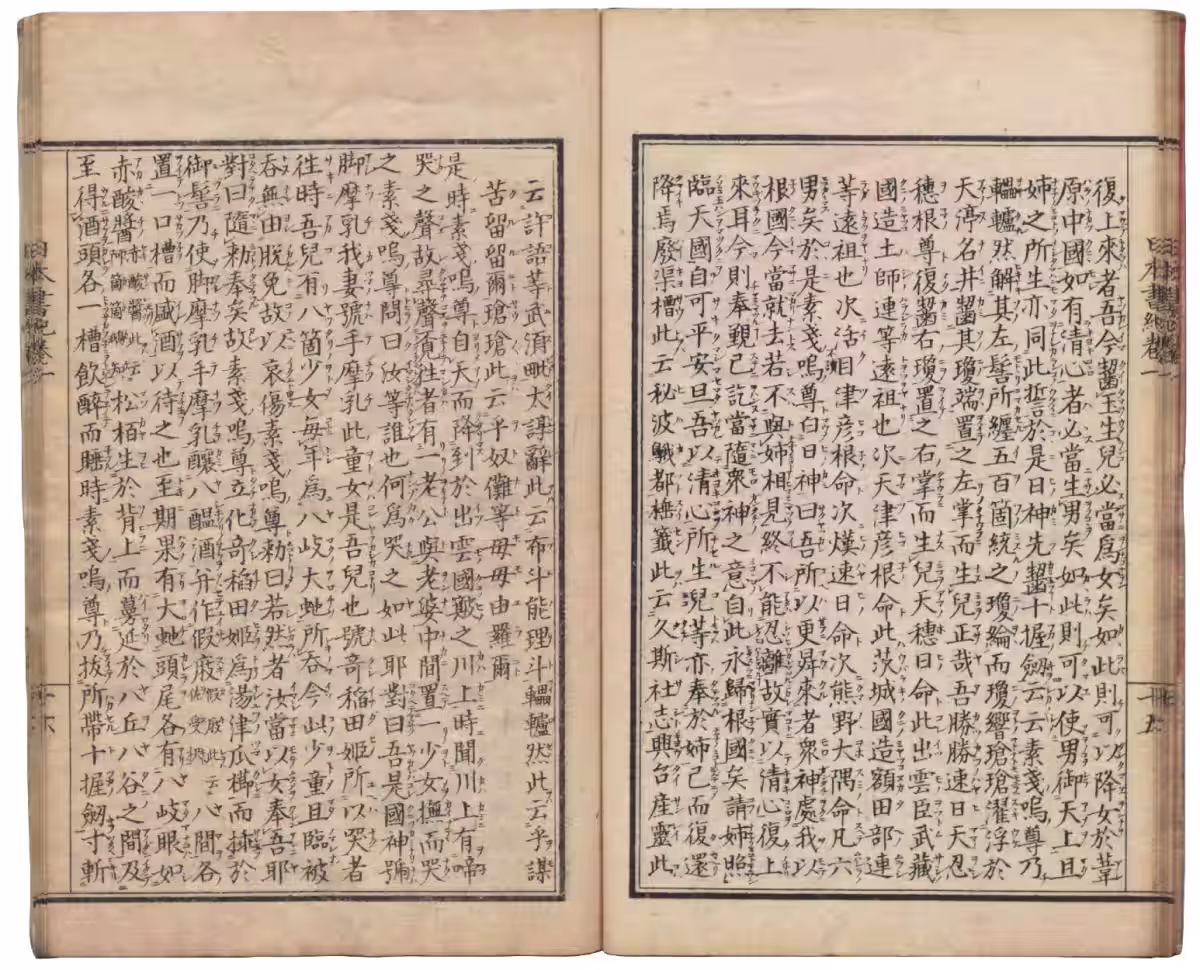 日本書紀卷一
卅五
復上來者吾今齧玉生兒必當爲女矣如此則可以降女於葦
原中國如有清心者必當生男矣如此則可以使男御天上且
姉之所生亦同此誓於是日神先齧十握劔云云素戔嗚尊乃
轠轤然解其左髻所纒五百箇統之瓊綸而瓊響瑲瑲濯浮於
天渟名井齧其瓊端置之左掌而生兒正哉吾勝勝速日天忍
穗根尊復齧右瓊置之右掌而生兒天穗日命此出雲臣武藏
國造土師連等遠祖也次天津彦根命此茨城國造額田部連
等遠祖也次活目津彦根命次熯速日命次熊野大隅命凡六
男矣於是素戔嗚尊白日神曰吾所以更昇來者衆神處我以
根國今當就去若不與姉相見終不能忍離故實以清心復上
來耳今則奉覲已訖當隨衆神之意自此永歸根國矣請姉照
臨天國自可平安且吾以清心所生兒等亦奉於姉已而復還
降焉廢渠槽此云秘波鵝都捶籤此云久斯社志興台産靈此
云許語等武湏毗大諄辭此云布斗能理斗轠轤然此云乎謀
苦留留爾瑲瑲此云乎奴儺等母母由羅爾
是時素戔嗚尊自天而降到於出雲國簸之川上時聞川上有啼
哭之聲故尋聲覓徃者有一老公與老婆中間置一少女撫而哭
之素戔嗚尊問曰汝等誰也何爲哭之如此耶對曰吾是國神號
脚摩乳我妻號手摩乳此童女是吾兒也號奇稻田姬所以哭者
徃時吾兒有八箇少女每年爲八岐大虵所吞今此少童且臨被
吞無由脫免故以哀傷素戔嗚尊勑曰若然者汝當以女奉吾耶
對曰隨勑奉矣故素戔嗚尊立化奇稻田姬爲湯津爪櫛而插於
御髻乃使脚摩乳手摩乳釀八醞酒并作假庪假庪此云佐受枳八間各
置一口槽而盛酒以待之也至期果有大虵頭尾各有八岐眼如
赤酸醬赤酸醬此云阿箇箇鵝知松栢生於背上而蔓延於八丘八谷之間及
至得酒頭各一槽飲醉而睡時素戔嗚尊乃拔所帶十握劔寸斬
日本書紀卷一
卅六